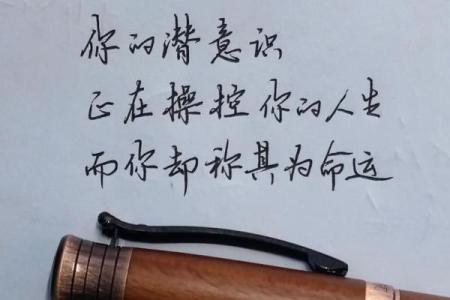 你的潜意识
正在操控你的人生
而你却称其为命运